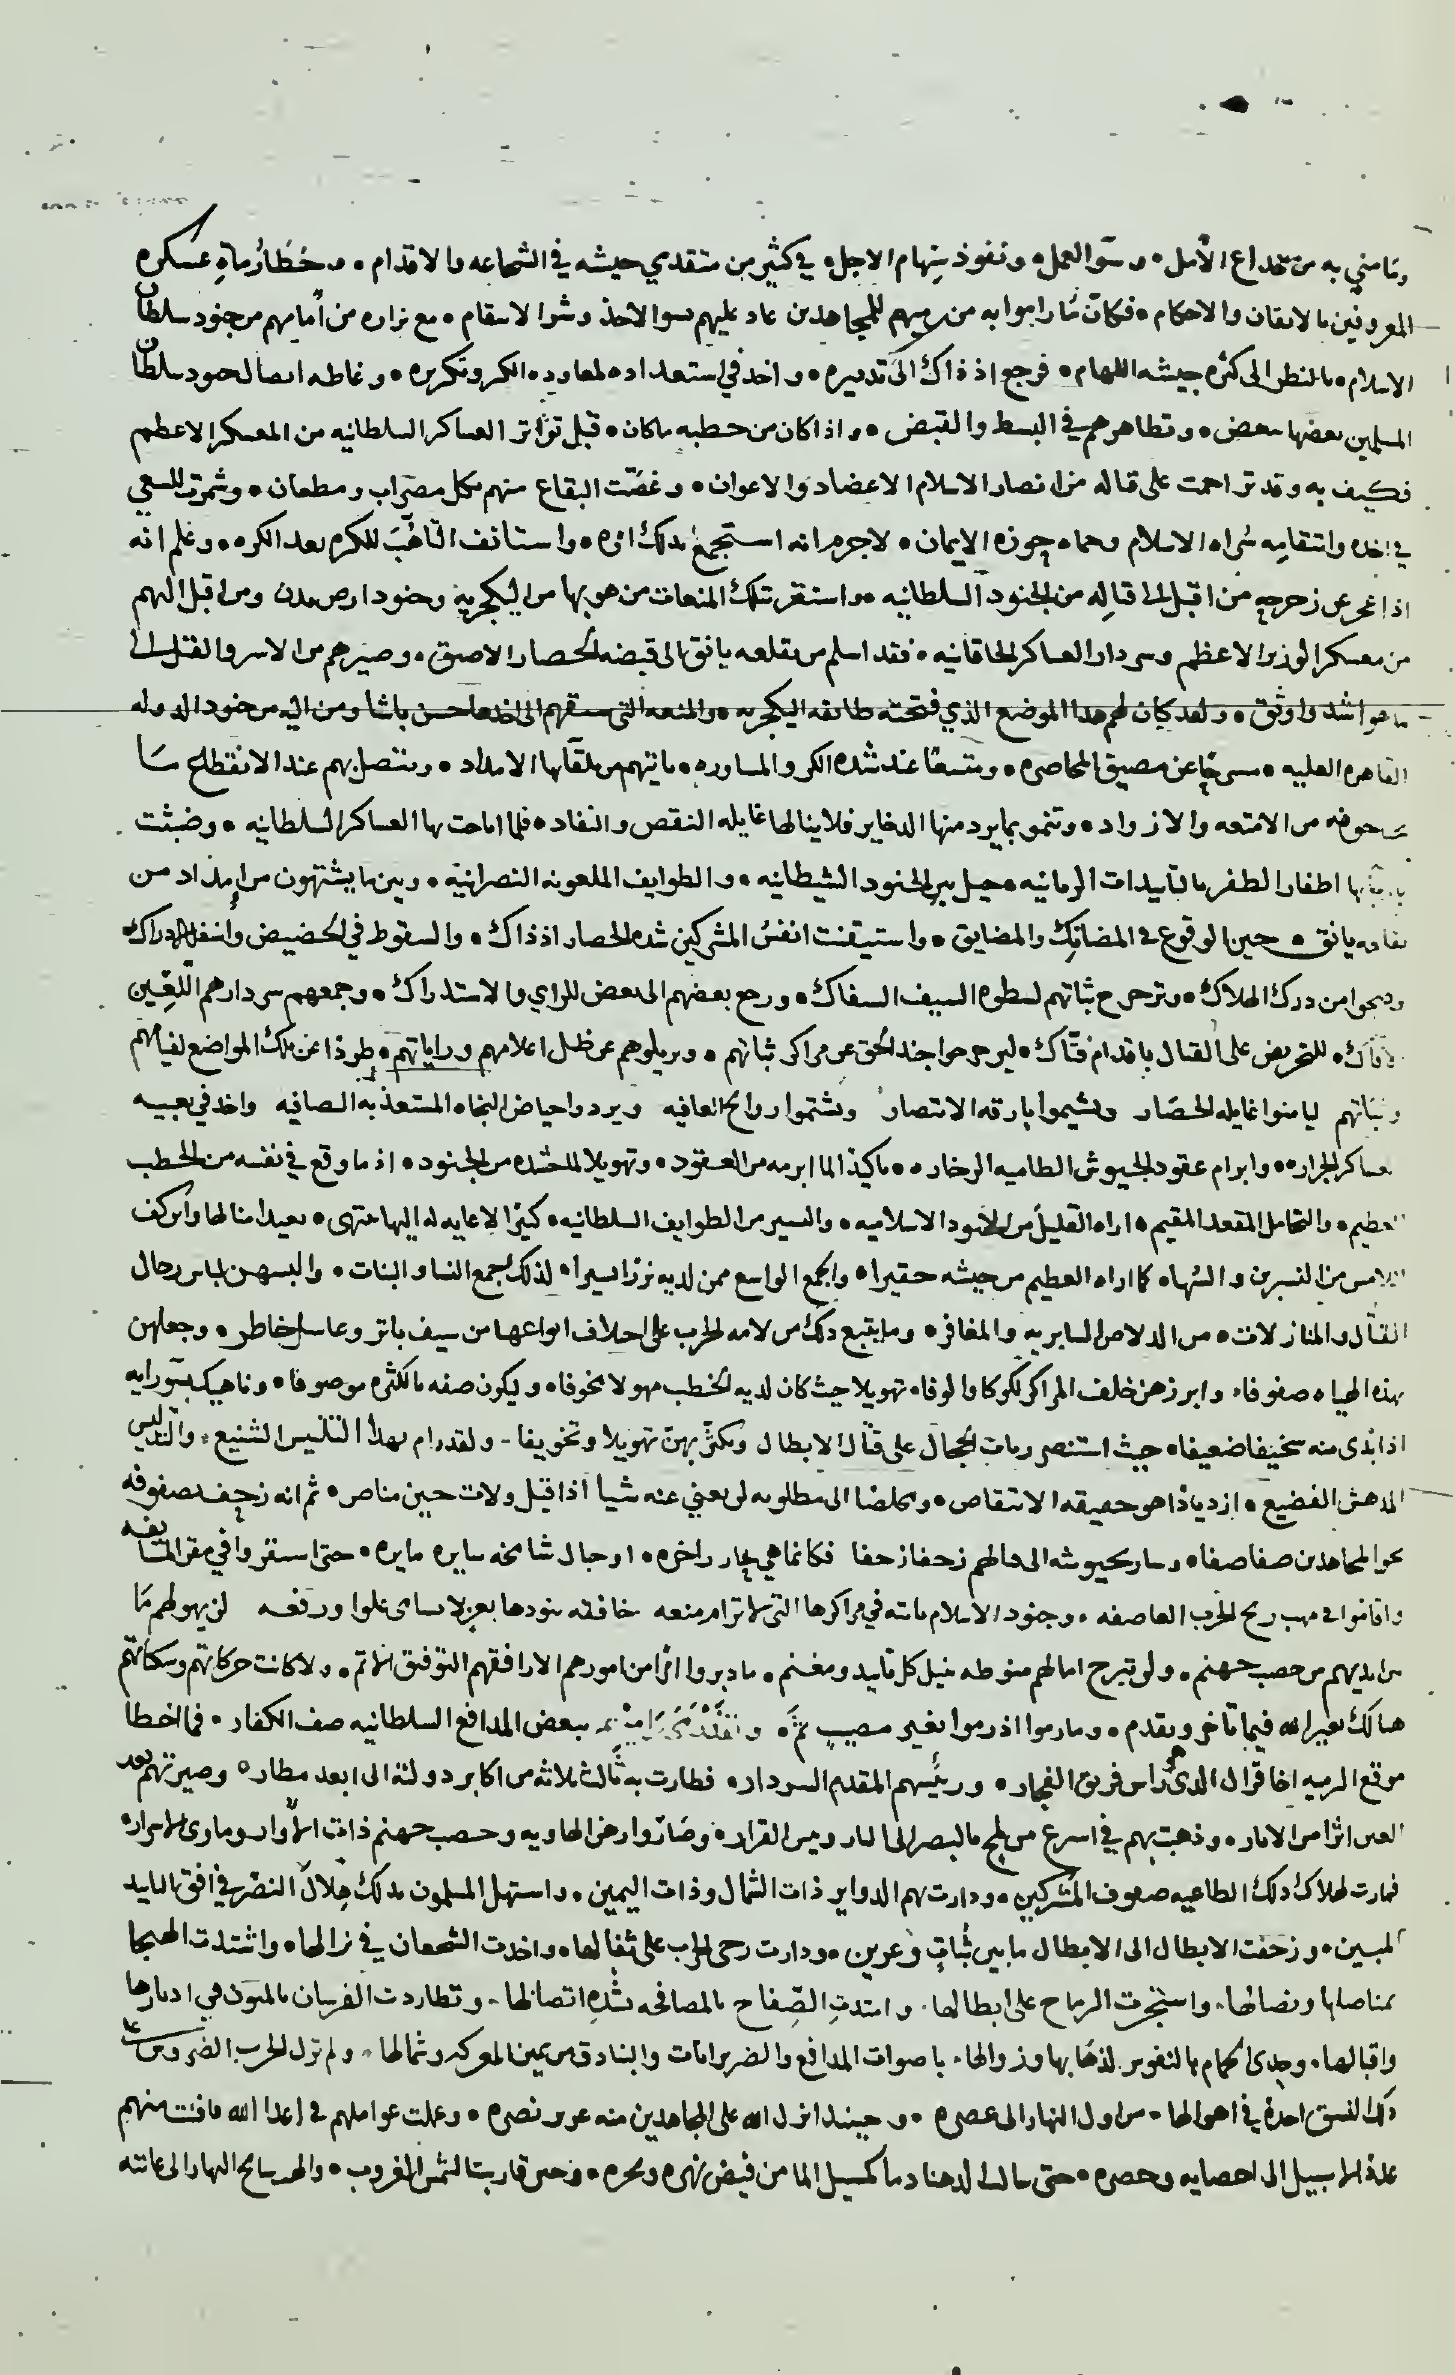 وما مني به من خداع الأمل ٥ وسوء العمل ٥ ونفوذ سهام الاجل ٥ في كثير من متقدمي جيشه في الشجاعه والاقدام ٥ وخطار رماة عسكره
المعروفين بالاتقان والاحكام ٥ فكان ما راموا به من رميهم للمجاهدين عاد عليهم بسوالاخذ وشر الانتقام ٥ مع نزاره من أمامهم من جنود سلطان
الاسلام ٥ بالنظر الى كثره جيشه اللهام ٥ فرجع اذ ذاك الى تدبيره ٥ واخذ في استعداده لمعاوده الكر وتكريره ٥ وغاظه اتصال جنود سلطان
المسلمين بعضها ببعض ٥ وتظاهرهم في البسط والقبض ٥ واذا كان من خطبه ما كان ٥ قبل تواتر العساكر السلطانيه من المعسكر الاعظم
فكيف به وقد تزاحمت على قتاله من انصار الاسلام الاعضاد والاعوان ٥ وغصت البقاع منهم بكل مضراب ومطعان ٥ وشمرت للسعي
في اخذه وانتقامه سراه الاسلام وحماه حوزه الايمان ٥ لاجرم انه استجمع بذلك امره ٥ واستانف التأهب للكره بعد الكره ٥ وعلم انه
اذا عجز عن زحزحه من اقبل الى قتاله من الجنود السلطانيه ٥ واستقر بتلك المنعات من هو بها من اليكجريه وجنود ارض مدن ومن اقبل اليهم
من معسكر الوزير الاعظم وسردار العساكر الخاقانيه ٥ فقد اسلم من بقلعه يانق الى قبضه الحصار الاضيق ٥ وصيرهم من الاسر والقتل الى
ما هو اشد واوثق ٥ ولقد كان لهم هذا الموضع الذي فتحته طائفه اليكجريه ٥ والمنعه التي سبقهم الى اخذها حسن باشا ومن اليه من جنود الدوله
القاهره العليه ٥ عن مضيق المحاصره ٥ ومتسعًا عند شده الكر والمساوره ٥ ياتيهم من تلقآيها الامداد ٥ ويتصل بهم عند الانقطاع ما
من الامتعه والازواد ٥ وتنمو بما يرد منها الذخاير فلا ينالها غايله النقص والنفاد ٥ فلما احاطت بها العساكر السلطانيه ٥ وضبثت
اظفار الظفر بالتأييدات الربانيه ٥ حيل بين الجنود الشيطانيه ٥ والطوايف الملعونه النصرانيه ٥ وبين ما يشتهون من إمداد من
بقلعه يانق ٥ حين الوقوع في المضانك والمضايق ٥ واستيقنت انفس المشركين شده الحصار اذ ذاك ٥ والسقوط في الحضيض وأسفل الادراك
من درك الهلاك ٥ وتزحزح ثباتهم لسطوه السيف السفاك ٥ ورجع بعضهم الى بعض للراي والاستدراك ٥ وجمعهم سردارهم اللعين
الأفاك ٥ للتحريض على القتال باقدام فتاك ٥ ليزحزحوا جند الحق عن مراكز ثباتهم ٥ ويزيلوهم عن ظل اعلامهم وراياتهم ٥ طردًا عن تلك المواضع لفيأتهم
وثباتهم ليامنوا غايله الحصار ويشيموا بارقه الانتصار ويشتموا روائح العافيه ويردوا حياض النجاه المستعذبه الصافيه واخذ في تعبيه
عساكره الجراره ٥ وابرام عقود الجيوش الطاميه الزخاره ٥ تأكيدًا لما ابرمه من العقود ٥ وتهويلا لما حشده من الجنود ٥ اذ ما وقع في نفسه من الخطب
العظيم ٥ والتحامل المقعد المقيم ٥ اراه القليل من الجنود الاسلاميه ٥ واليسير من الطوايف السلطانيه ٥ كثيرًا لا غايه له اليها منتهى ٥ بعيدا منالها واين كف
اللامس من النسرين والسها ٥ كما اراه العظيم من جيشه حقيرا ٥ والجمع الواسع ممن لديه نزرا يسيرا ٥ لذلك جمع النسا والبنات ٥ والبسهن لباس رجال
القتال والمنازلات ٥ من الدلاص السابريه والمغافر ٥ وما يتبع ذلك من لامه الحرب على اختلاف انواعها من سيف باتر وعاسل خاطر ٥ وجعلهن
بهذه الهياه صفوفا ٥ وابرزهن خلف المراكز لكوكا والوفا ٥ تهويلا حيث كان لديه الخطب مهولا مخوفا ٥ وليكون صفه بالكثره موصوفا ٥ وناهيك بسورايه
اذ ابدى منه سخيفا ضعيفا ٥ حيث استنصر ربات الحجال على قتال الابطال وتكثر بهن تهويلا وتخويفا ٥ ولقد رام بهذا التلبيس الشنيع ٥ والتدليس
المدهش الفضيع ٥ ازديادًا هو حقيقه الانتقاص ٥ وتخلصًا الى مطلوبه لن يغني عنه شيا اذا قيل ولات حين مناص ٥ ثم انه زحف بصفوفه
نحو المجاهدين صفا صفا ٥ وسار بجيوشه الى قتالهم زحفا زحفا فكانما هي بحار زاخره ٥ او جبال شامخه سايره مايره ٥ حتى استقروا في مقر المسايفه
واقاموا في مهب ريح الحرب العاصفه ٥ وجنود الاسلام ثابته في مراكزها التي لا ترام منعه خافقه بنودها بعز لا يسامى علوا ورفعه لن يهولهم ما
من حصب جهنم ٥ ولن تبرح امالهم منوطه بنيل كل تاييد ومغنم ٥ ما دبروا امرًا من امورهم الا رافقهم التوفيق الاتم ٥ ولا كانت حركاتهم وسكناتهم
هنالك بغير الله فيما تأخر وتقدم ٥ وما رموا اذ رموا بغير مصيب ثَمَّ ٥ ببعض المدافع السلطانيه صف الكفار ٥ فما اخطا
موقع الرميه اخا قرال الذي هو رأس فريق الفجار ٥ ورئيسهم المقدم السردار ٥ فطارت به ثالث ثلاثه من اكابر دولته الى ابعد مطار ٥ وصيرتهم بعد
العين اثرا من الاثار ٥ وذهبت بهم في اسرع من لمح بالبصر الى النار وبيس القرار ٥ وصاروا رهن الهاويه وحصب جهنم ذات الأوار وماوى الاشرار ٥
فمارت لهلاك ذلك الطاغيه صفوف المشركين ٥ ودارت بهم الدواير ذات الشمال وذات اليمين ٥ واستهل المسلمون بذلك هلال النصر في افق التاييد
المبين ٥ وزحفت الابطال الى الابطال ما بين ثباتٍ وعرين ٥ ودارت رحى الحرب على ثفالها ٥ واخذت الشجعان في نزالها ٥ واشتدت الهيجا
بمناصلها ونصالها ٥ واشتجرت الرماح على ابطالها ٥ وامتدت الصفاح بالمصافحه بشده اتصالها ٥ وتطاردت الفرسان بالمنون في ادبارها
واقبالها ٥ وحدى الحمام بالنفوس لذهابها وزوالها ٥ باصوات المدافع والضربزانات والبنادق من يمين المعركه وشمالها ٥ ولم تزل الحرب الضروس على
ذلك النسق اخذة في اهوالها ٥ من اول النهار الى عصره ٥ وحينئذ انزل الله على المجاهدين منه عزيز نصره ٥ وعملت عواملهم في اعدا الله فافنت منهم
عددا لا سبيل الى احصايه وحصره ٥ حتى سالت الدهنا دما كمسيل الما من فيض نهره وبحره ٥ وحين قاربت الشمس الغروب ٥ سابح النهار الى غايته